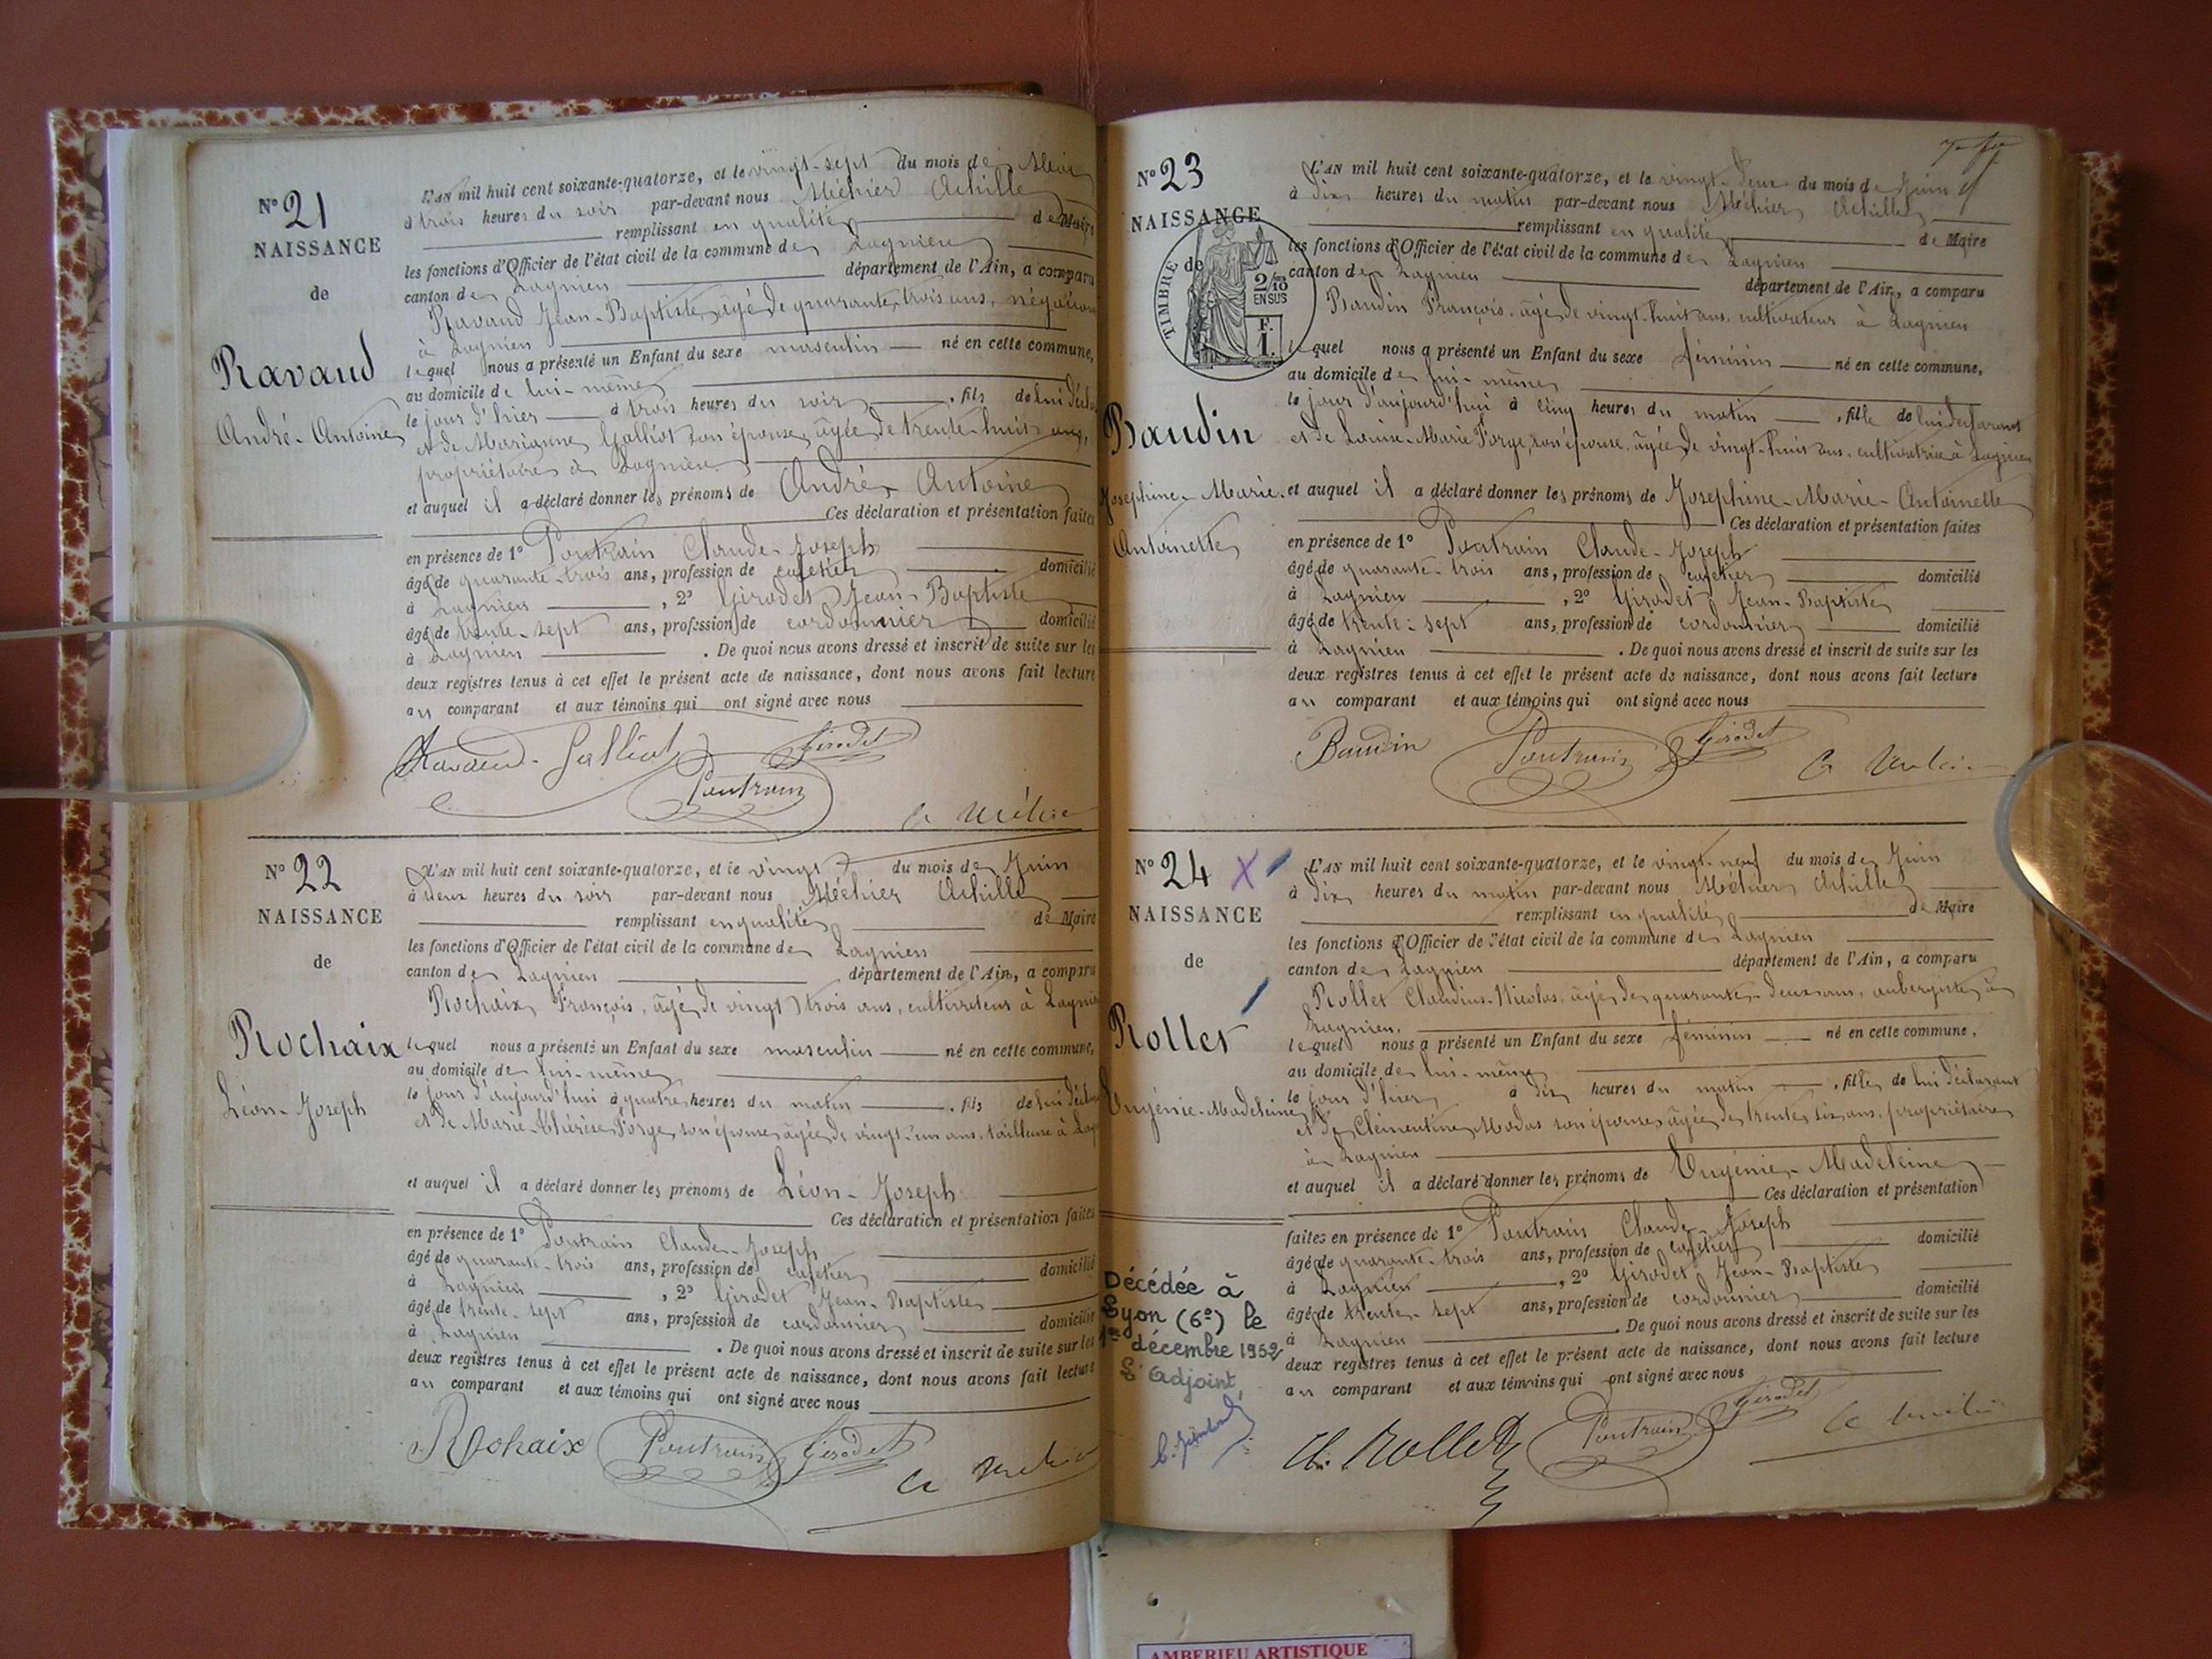 N° 21
NAISSANCE
de
Ravaud
André-Antoine
L'AN mil huit cent soixante-quatorze, et le vingt-sept du mois de
à trois heures du soir par-devant nous Méhier Achille
remplissant en qualité de Maire
les fonctions d'Officier de l'état civil de la commune de Lagnieu
canton de Lagnieu département de l'Ain, a comparu
Ravaud Jean-Baptiste, âgé de quarante trois ans, négociant
à Lagnieu
lequel nous a présenté un Enfant du sexe masculin né en cette commune,
au domicile de lui-même
le jour d'hier à trois heures du soir, fils de lui
et de Marianne Galliot son épouse, âgée de trente-huit ans,
propriétaire à Lagnieu
et auquel il a déclaré donner les prénoms de André Antoine
Ces déclaration et présentation faites
en présence de 1° Poutrain Claude-Joseph
âgé de quarante-trois ans, profession de cafetier domicilié
à Lagnieu, 2° Girodet Jean-Baptiste
âgé de trente-sept ans, profession de cordonnier domicilié
à Lagnieu. De quoi nous avons dressé et inscrit de suite sur les
deux registres tenus à cet effet le présent acte de naissance, dont nous avons fait lecture
au comparant et aux témoins qui ont signé avec nous
Ravaud-Galliot
Girodet
Poutrain
N° 22
NAISSANCE
de
Rochaix
Léon-Joseph
L'AN mil huit cent soixante-quatorze, et le vingt du mois de Juin
à deux heures du soir par-devant nous Méhier Achille
remplissant en qualité de Maire
les fonctions d'Officier de l'état civil de la commune de Lagnieu
canton de Lagnieu département de l'Ain, a comparu
Rochaix François, âgé de vingt trois ans, cultivateur à Lagnieu
lequel nous a présenté un Enfant du sexe masculin né en cette commune,
au domicile de lui-même
le jour d'aujourd'hui à quatre heures du matin, fils de lui
et de Marie-Thérèse Forge, son épouse, âgée de vingt-un ans, tailleuse à
et auquel il a déclaré donner les prénoms de Léon-Joseph
Ces déclaration et présentation faites
en présence de 1° Poutrain Claude-Joseph
âgé de quarante-trois ans, profession de cafetier domicilié
à Lagnieu, 2° Girodet Jean-Baptiste
âgé de trente-sept ans, profession de cordonnier domicilié
à Lagnieu. De quoi nous avons dressé et inscrit de suite sur les
deux registres tenus à cet effet le présent acte de naissance, dont nous avons fait lecture
au comparant et aux témoins qui ont signé avec nous
Rochaix Poutrain Girodet
N° 23
NAISSANCE
de
TIMBRE
2/10
EN SUS
F.
1.
Baudin
Josephine-Marie-
Antoinette
L'AN mil huit cent soixante-quatorze, et le vingt-deux du mois de Juin
à dix heures du matin par-devant nous Méhier Achille
remplissant en qualité de Maire
les fonctions d'Officier de l'état civil de la commune de Lagnieu
canton de Lagnieu département de l'Ain, a comparu
Baudin François, âgé de vingt-huit ans, cultivateur à Lagnieu
lequel nous a présenté un Enfant du sexe féminin né en cette commune,
au domicile de lui-même
le jour d'aujourd'hui à cinq heures du matin, fille de lui déclarant
et de Louise-Marie Forge, son épouse, âgée de vingt-huit ans, cultivatrice à Lagnieu
et auquel il a déclaré donner les prénoms de Josephine-Marie-Antoinette
Ces déclaration et présentation faites
en présence de 1° Poutrain Claude-Joseph
âgé de quarante-trois ans, profession de cafetier domicilié
à Lagnieu, 2° Girodet Jean-Baptiste
âgé de trente-sept ans, profession de cordonnier domicilié
à Lagnieu. De quoi nous avons dressé et inscrit de suite sur les
deux registres tenus à cet effet le présent acte de naissance, dont nous avons fait lecture
au comparant et aux témoins qui ont signé avec nous
Baudin Poutrain Girodet
N° 24 X
NAISSANCE
de
Rollet
Eugénie-Madeleine
L'AN mil huit cent soixante-quatorze, et le vingt-neuf du mois de Juin
à dix heures du matin par-devant nous Méhier Achille
remplissant en qualité de Maire
les fonctions d'Officier de l'état civil de la commune de Lagnieu
canton de Lagnieu département de l'Ain, a comparu
Rollet Claudius-Nicolas, âgé de quarante-deux ans, aubergiste à
Lagnieu.
lequel nous a présenté un Enfant du sexe féminin né en cette commune,
au domicile de lui-même
le jour d'hier à dix heures du matin, fille de lui déclarant
et de Clémentine Modas son épouse, âgée de trente six ans, propriétaire
à Lagnieu
et auquel il a déclaré donner les prénoms de Eugénie-Madeleine
Ces déclaration et présentation
faites en présence de 1° Poutrain Claude-Joseph domicilié
âgé de quarante-trois ans, profession de cafetier
à Lagnieu, 2° Girodet Jean-Baptiste
âgé de trente-sept ans, profession de cordonnier domicilié
à Lagnieu. De quoi nous avons dressé et inscrit de suite sur les
deux registres tenus à cet effet le présent acte de naissance, dont nous avons fait lecture
au comparant et aux témoins qui ont signé avec nous
Décédée à
Lyon (6e) le
1er décembre 1952
L'Adjoint,
Cl. Rollet Poutrain Girodet
AMBERIEU ARTISTIQUE